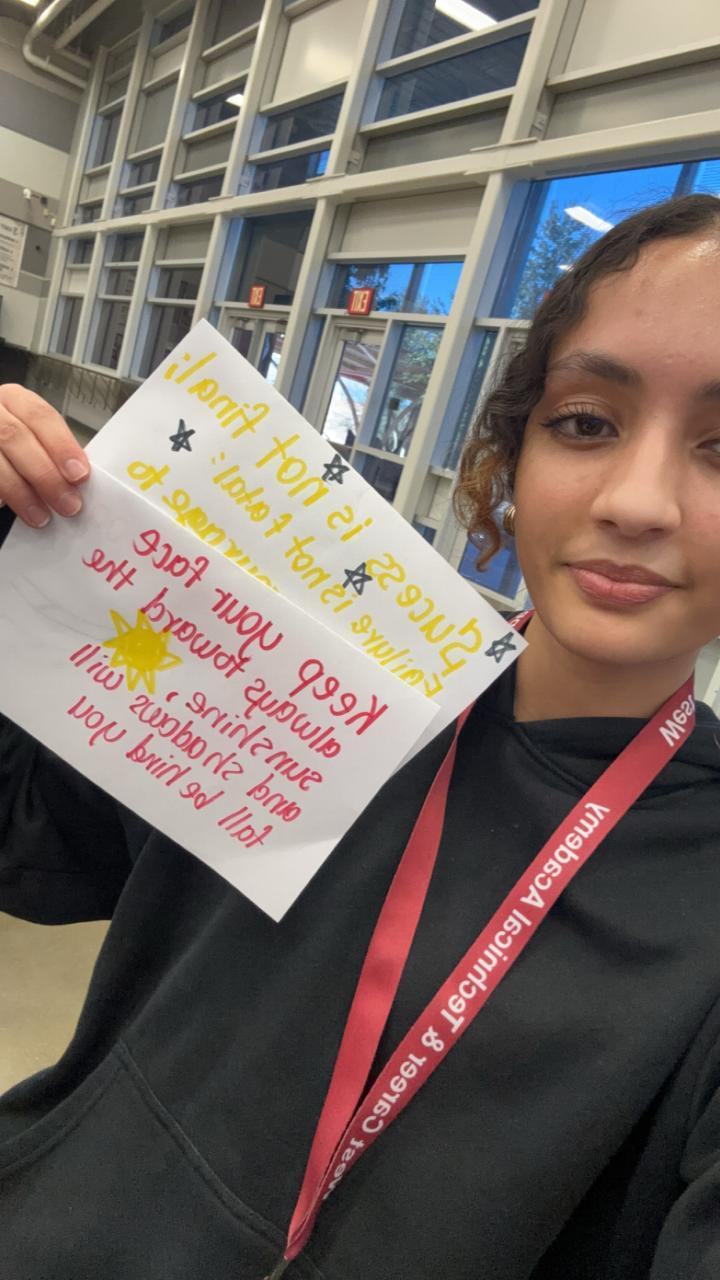 EXIT
EXIT
Sucess is not final;
Failure is not fatal:
courage to
Keep your face
always toward the
sunshine,
and shadows will
fall behind you
West
West Career & Technical Academy